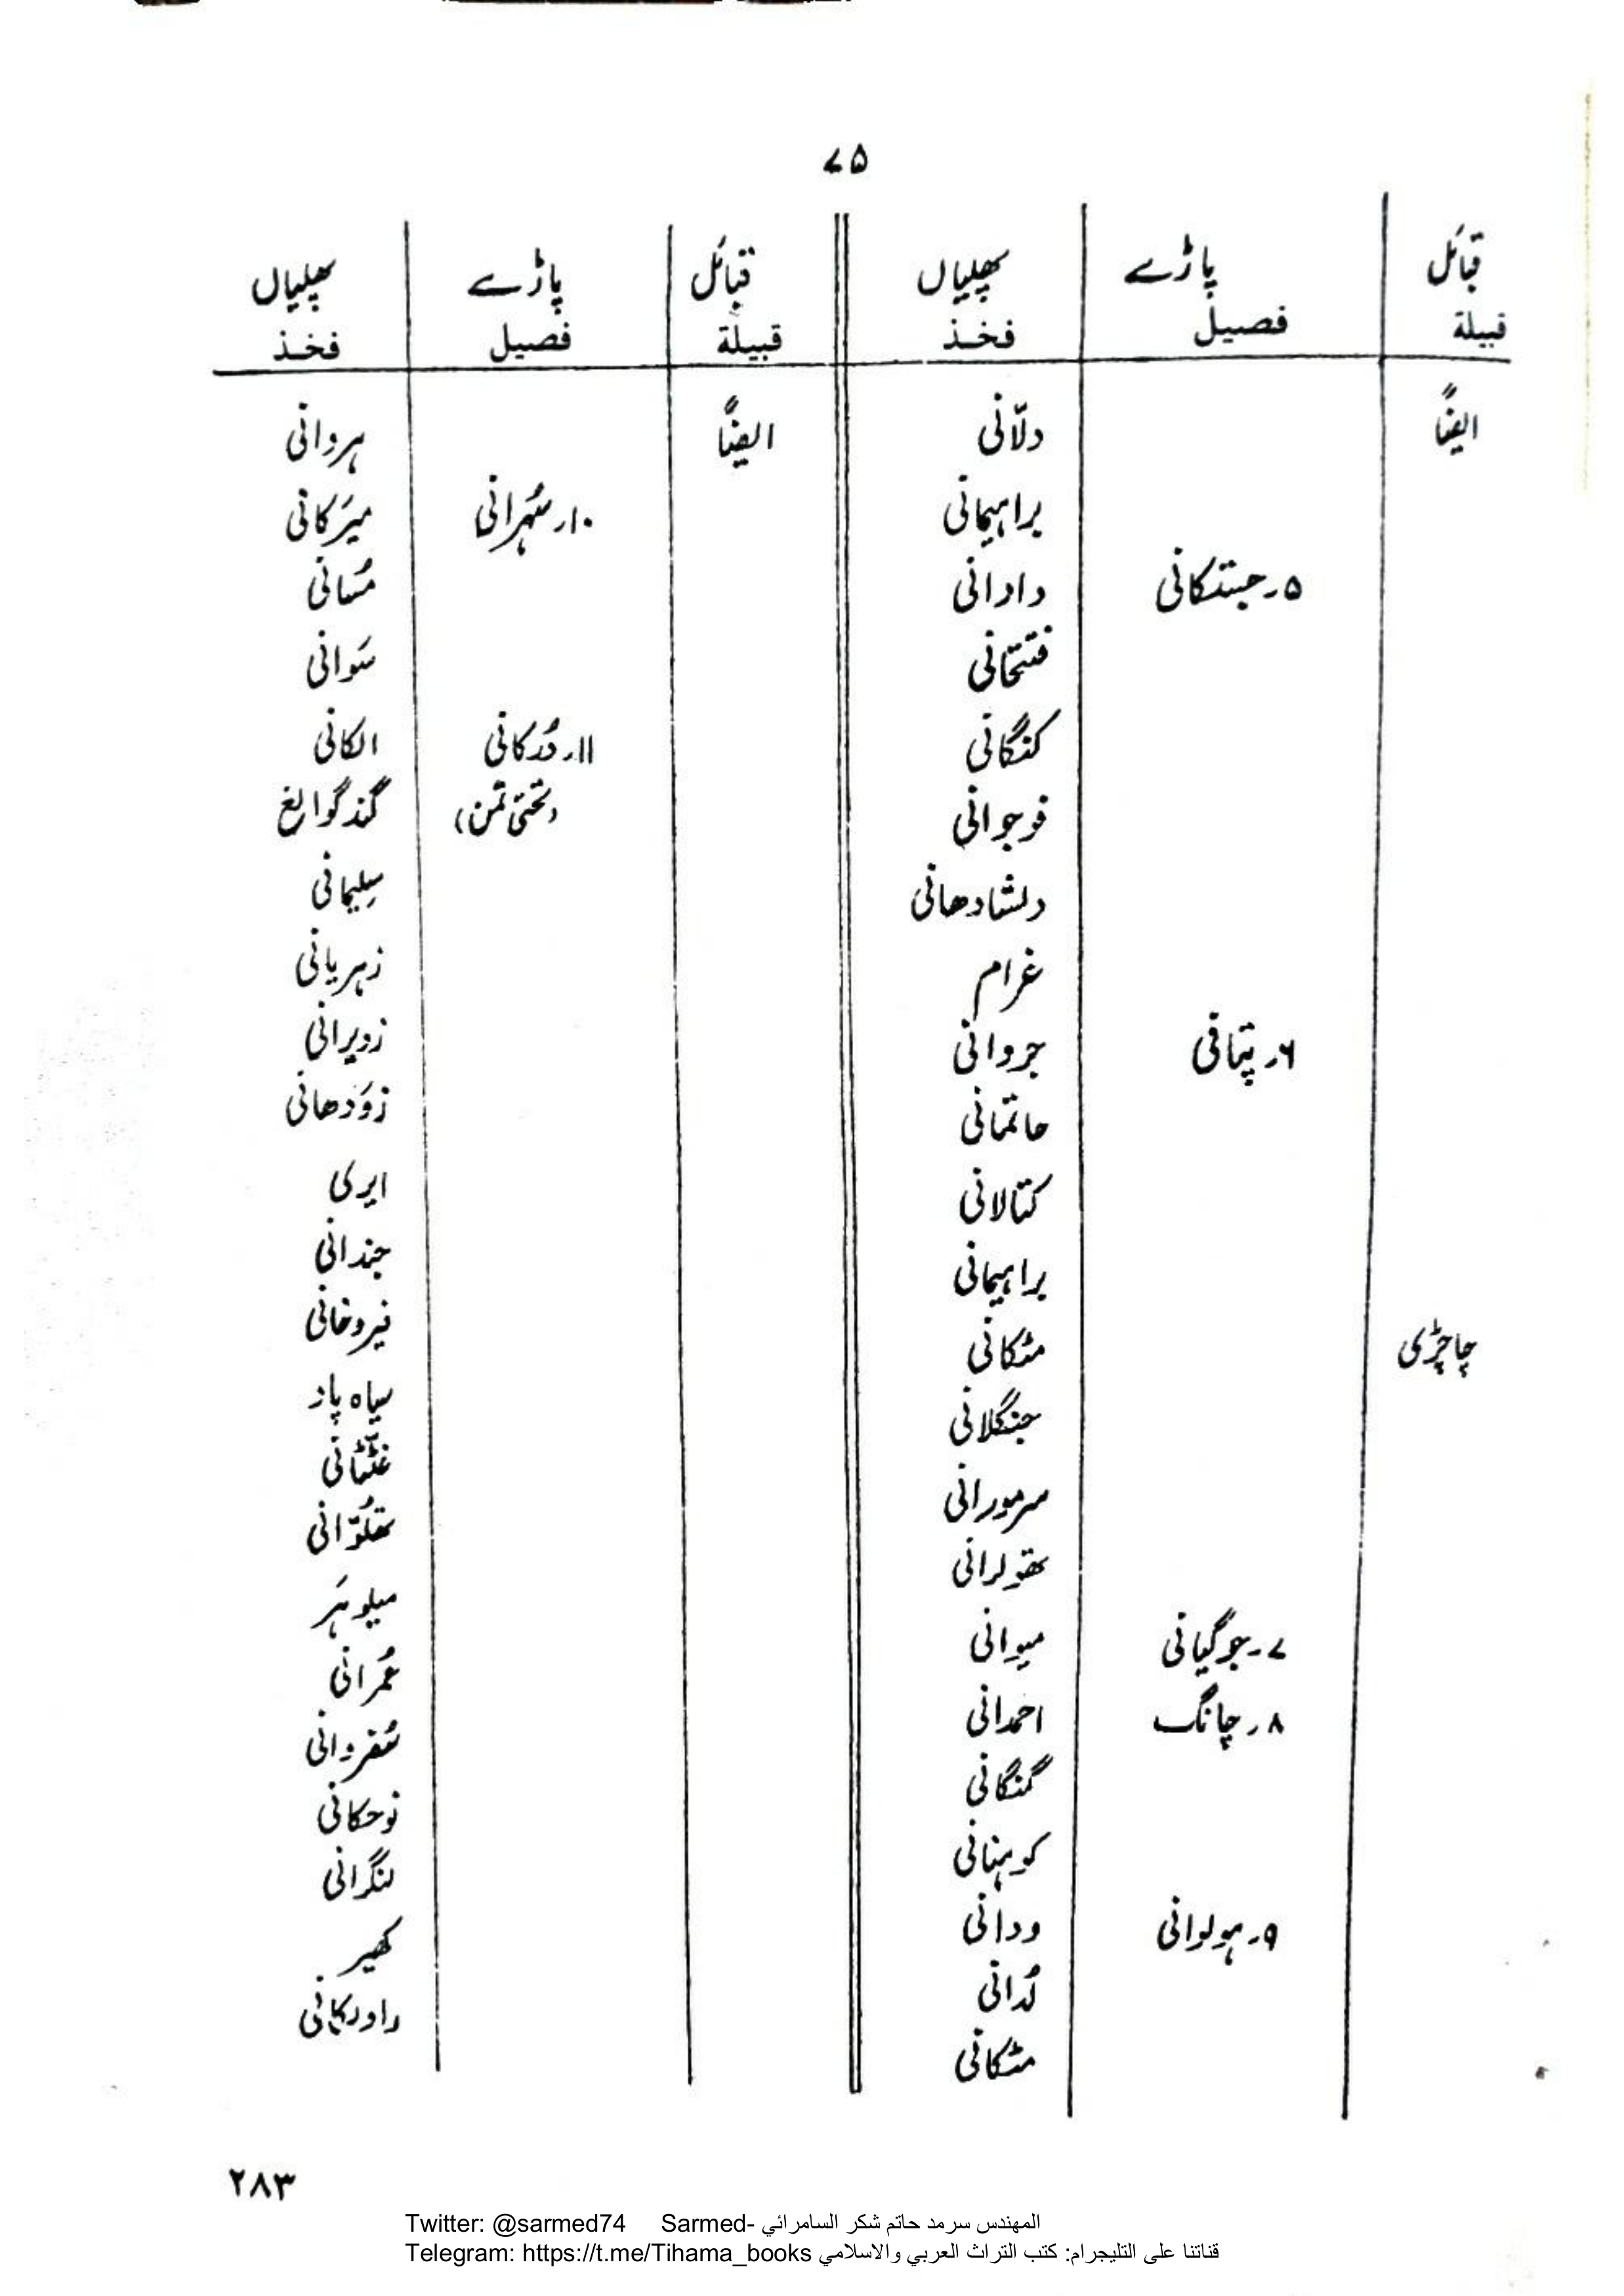 ۷۵
قبائل پاڑے پھلیاں
قبيلة فصيل فخذ
ایضاً دلّانی
براہیمانی
۵۔ جنتکانی دادانی
فتحانی
کنگانی
فوجوانی
دلشادھانی
غرام
۶۔ پتافی جروانی
حاتمانی
کتالانی
براہیمانی
چاچڑی مٹکانی
جنگلانی
سرمورانی
تھولرانی
۷۔ جوگیانی میوانی
۸۔ چانگ احمدانی
گمنگانی
کوہنانی
۹۔ ہولوانی ودانی
لُدانی
مٹکانی
قبائل پاڑے پھلیاں
قبيلة فصيل فخذ
ایضاً ہروانی
۱۰۔ سُہرانی میرَکانی
مُسانی
سَوانی
۱۱۔ دُرکانی الکانی
(تحتی تمن) گندگوالغ
سِلیمانی
زہریانی
زوبرانی
زوَدھانی
ایری
جندانی
فیروخانی
سیاہ پاز
غٹّانی
تھلُوّانی
میلوہَر
عُمرانی
سُفروانی
نوحکانی
لنگرانی
کھیر
راورکانی
٢٨٣
Twitter: @sarmed74 Sarmed- المهندس سرمد حاتم شكر السامرائي
Telegram: https://t.me/Tihama_books قناتنا على التليجرام: كتب التراث العربي والاسلامي